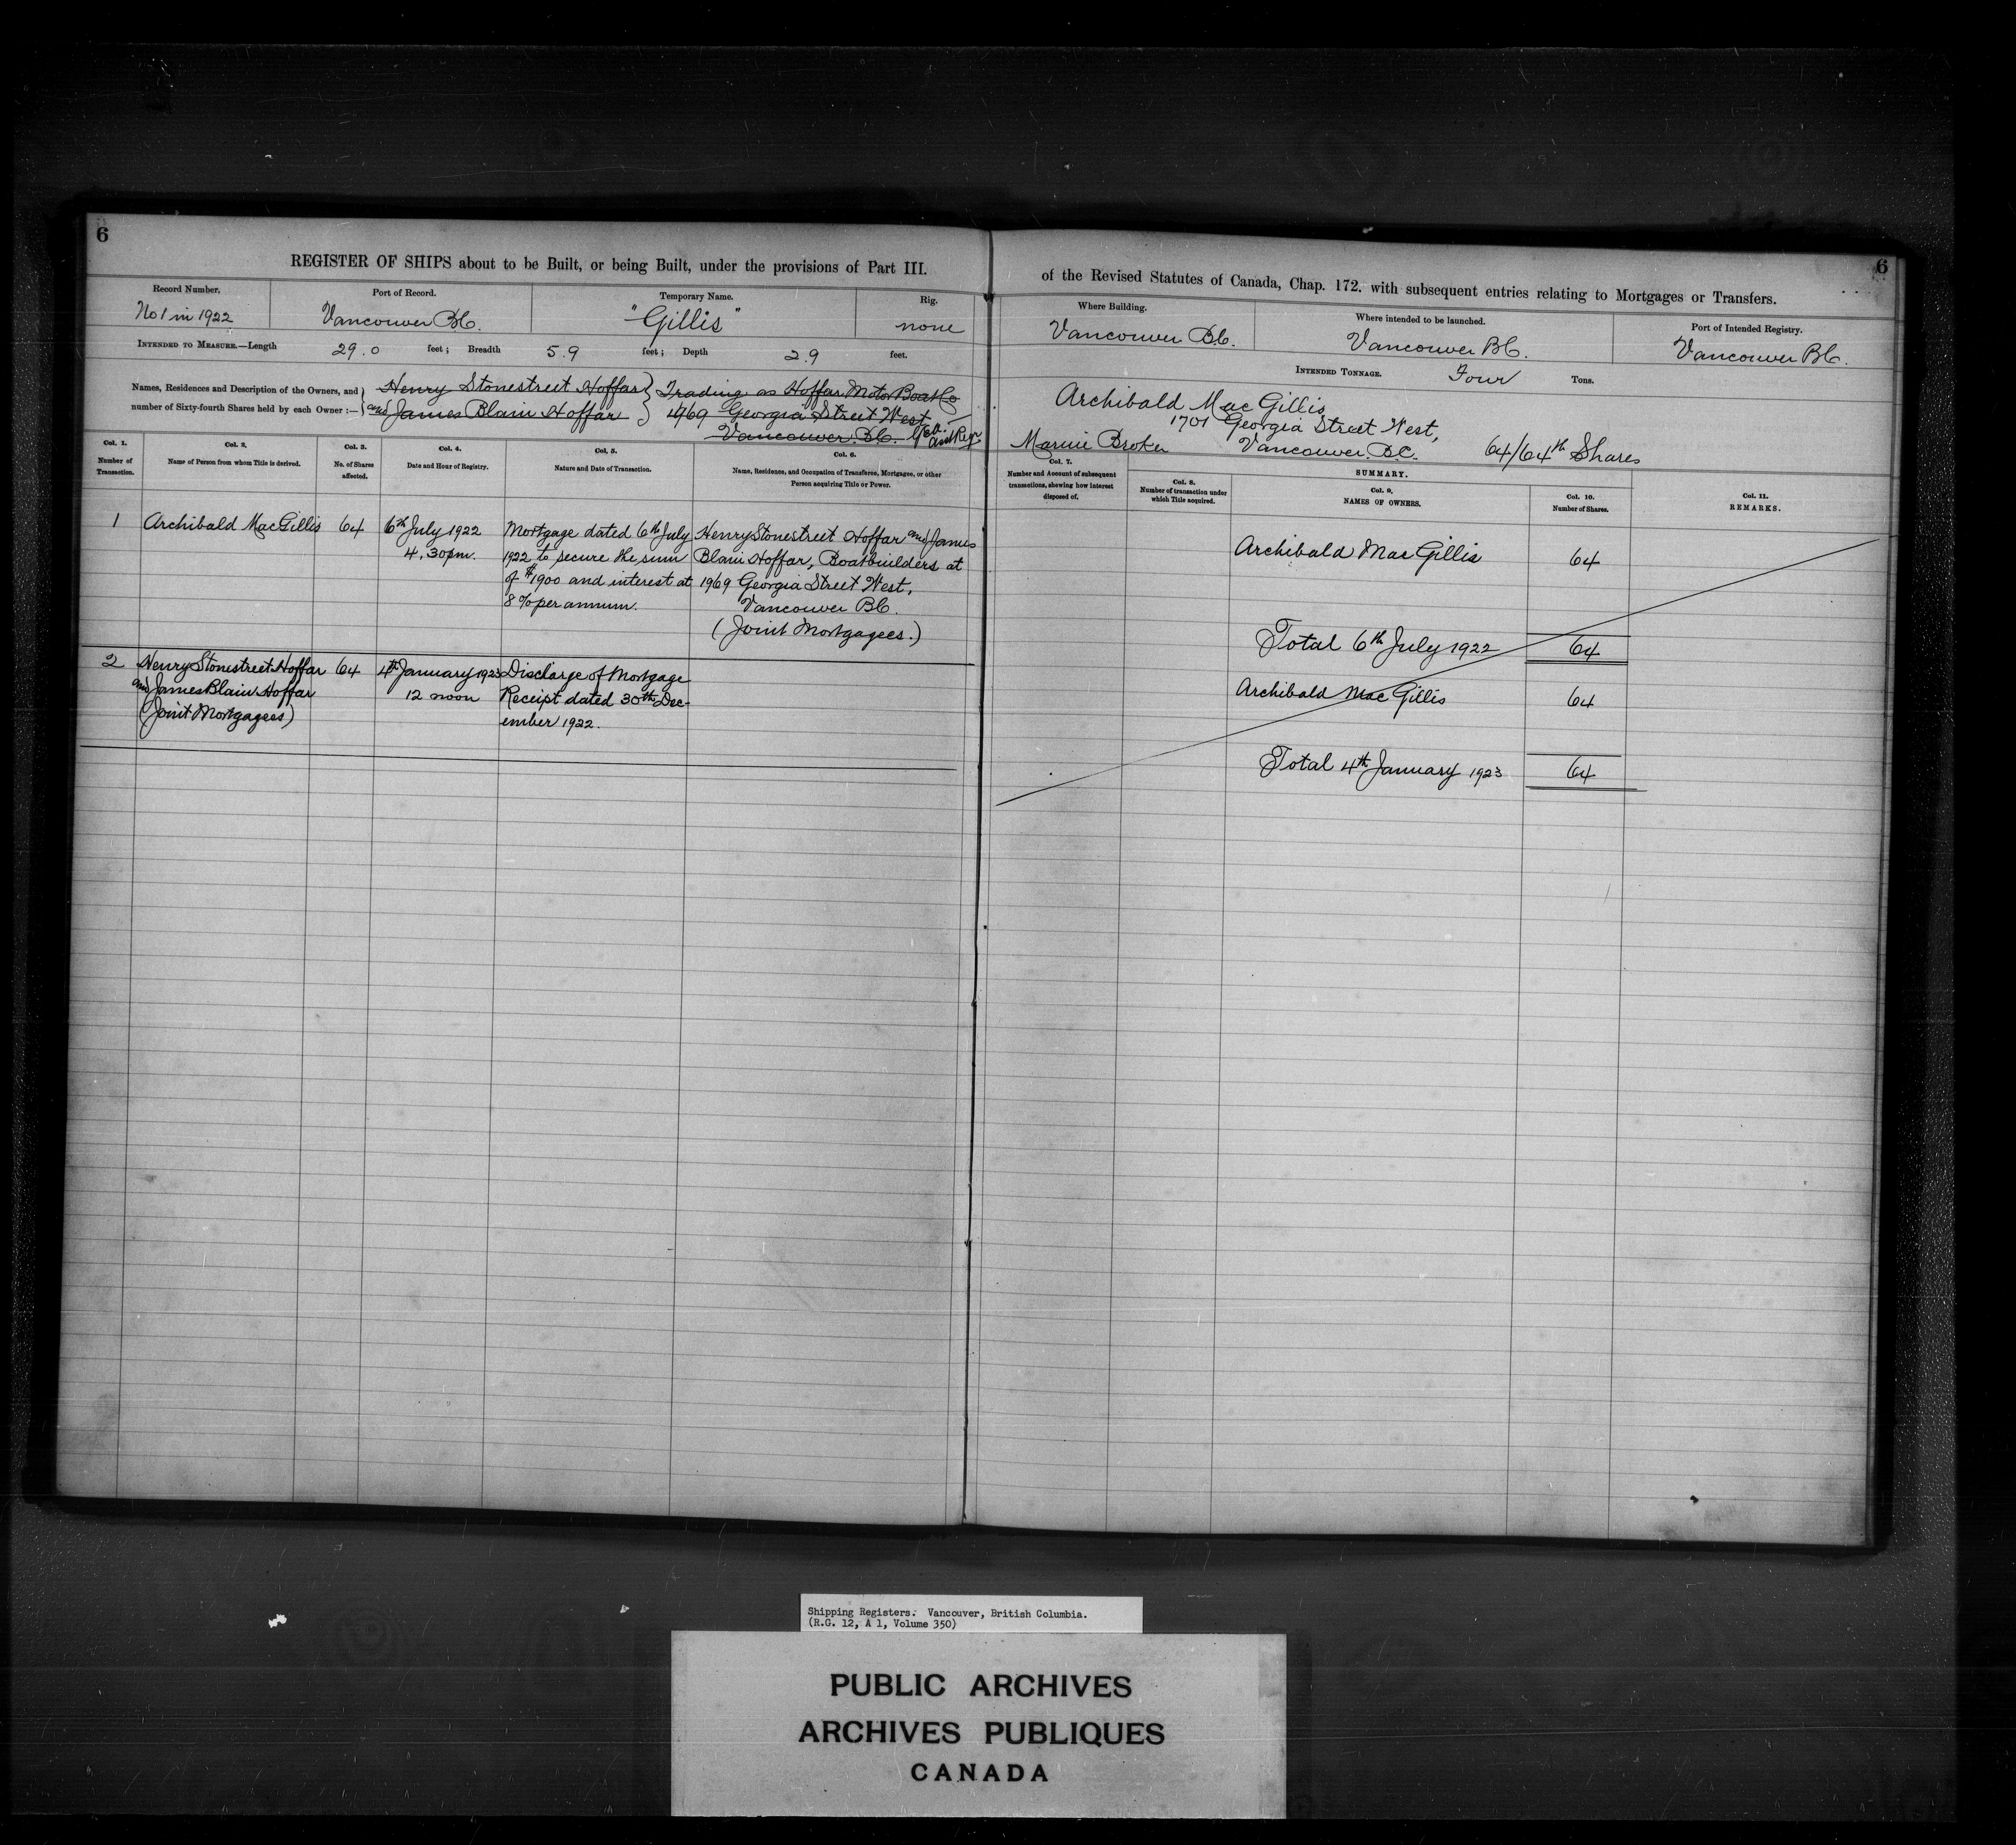 6
REGISTER OF SHIPS about to be Built, or being Built, under the provisions of Part III.
Record Number.
No 1 in 1922
Port of Record.
Vancouver B.C.
Temporary Name.
"Gillis"
Rig.
none
INTENDED TO MEASURE.—Length 29.0 feet; Breadth 5.9 feet; Depth 2.9 feet.
Names, Residences and Description of the Owners, and
number of Sixty-fourth Shares held by each Owner :—
Henry Stonestreet Hoffar
and James Blain Hoffar
Trading as Hoffar Motor Boat Co
1969 Georgia Street West
Vancouver. B.C.
Col. 1.
Number of
Transaction.
Col. 2.
Name of Person from whom Title is derived.
Col. 3.
No. of Shares
affected.
Col. 4.
Date and Hour of Registry.
Col. 5.
Nature and Date of Transaction.
Col. 6.
Name, Residence, and Occupation of Transferee, Mortgagee, or other
Person acquiring Title or Power.
1
Archibald MacGillis
64
6th July 1922
4.30pm.
Mortgage dated 6th July
1922 to secure the sum
of $1900 and interest at
8% per annum.
Henry Stonestreet Hoffar and James
Blain Hoffar, Boatbuilders at
1969 Georgia Street West,
Vancouver B.C.
(Joint Mortgagees.)
2
Henry Stonestreet Hoffar
and James Blain Hoffar
(Joint Mortgagees)
64
4th January 1923
12 noon
Discharge of Mortgage
Receipt dated 30th Dec-
ember 1922.
6
of the Revised Statutes of Canada, Chap. 172. with subsequent entries relating to Mortgages or Transfers.
Where Building.
Vancouver B.C.
Where intended to be launched.
Vancouver B.C.
Port of Intended Registry.
Vancouver B.C.
INTENDED TONNAGE. Four Tons.
Archibald Mac Gillis
1701 Georgia Street West,
Marine Broker Vancouver. B.C. 64/64th Shares
Col. 7.
Number and Account of subsequent
transactions, shewing how interest
disposed of.
Col. 8.
Number of transaction under
which Title acquired.
SUMMARY.
Col. 9.
NAMES OF OWNERS.
Col. 10.
Number of Shares.
Col. 11.
REMARKS.
Archibald Mac Gillis 64
Total 6th July 1922 64
Archibald Mac Gillis 64
Total 4th January 1923 64
Shipping Registers. Vancouver, British Columbia.
(R.G. 12, A 1, Volume 350)
PUBLIC ARCHIVES
ARCHIVES PUBLIQUES
CANADA